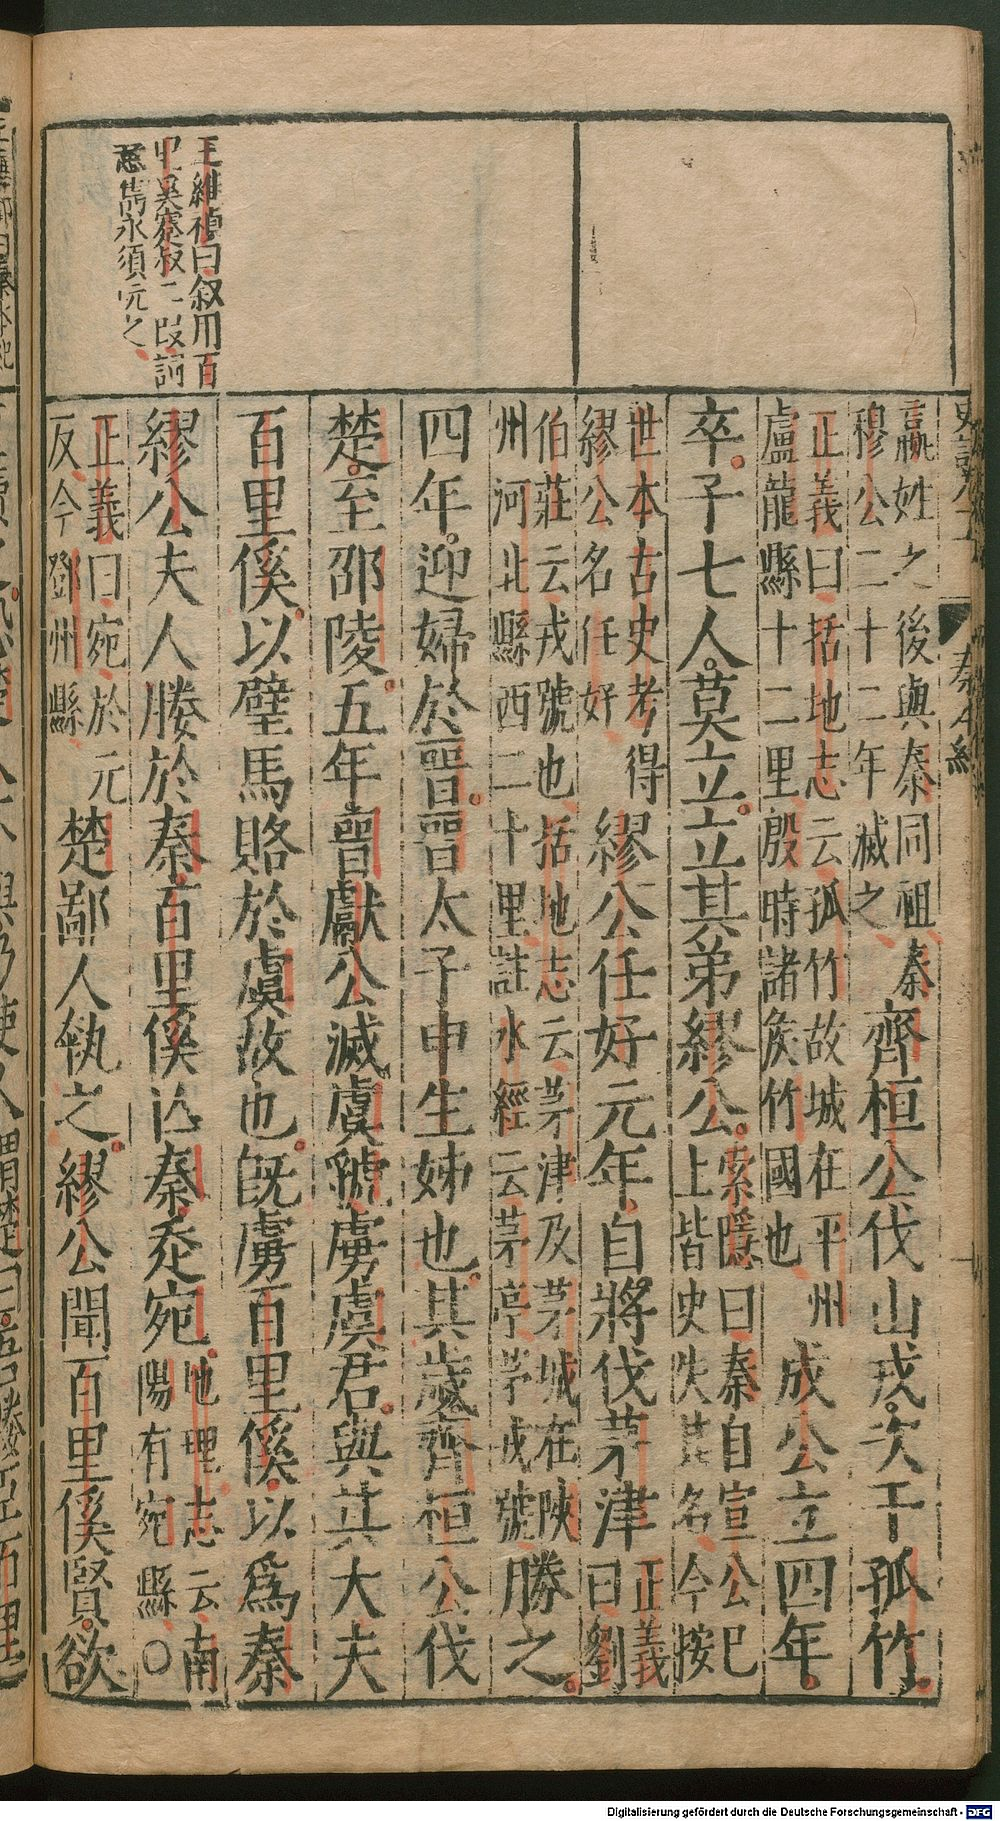 王維禎曰叙用百
里奚蹇叔二段詞
意雋永須玩之
嬴姓之後與秦同祖秦
穆公二十二年滅之
齊桓公伐山戎次于孤竹
正義曰括地志云孤竹故城在平州
盧龍縣十二里殷時諸矦竹國也
成公立四年
卒子七人莫立立其弟繆公
索隱曰秦自宣公巳
上皆史失其名今按
世本古史考得
繆公名任好
繆公任好元年自將伐茅津
正義
曰劉
伯莊云戎號也括地志云茅津及茅城在陝
州河北縣西二十里註水經云茅亭茅戎號
勝之
四年迎婦於晉晉太子申生姊也其歲齊桓公伐
楚至邵陵五年晉獻公滅虞虢虜虞君與其大夫
百里傒以璧馬賂於虞故也旣虜百里傒以爲秦
繆公夫人媵於秦百里傒亾秦走宛
地理志云南
陽有宛縣〇
正義曰宛於元
反今鄧州縣
楚鄙人執之繆公聞百里傒賢欲
Digitalisierung gefördert durch die Deutsche Forschungsgemeinschaft - DFG